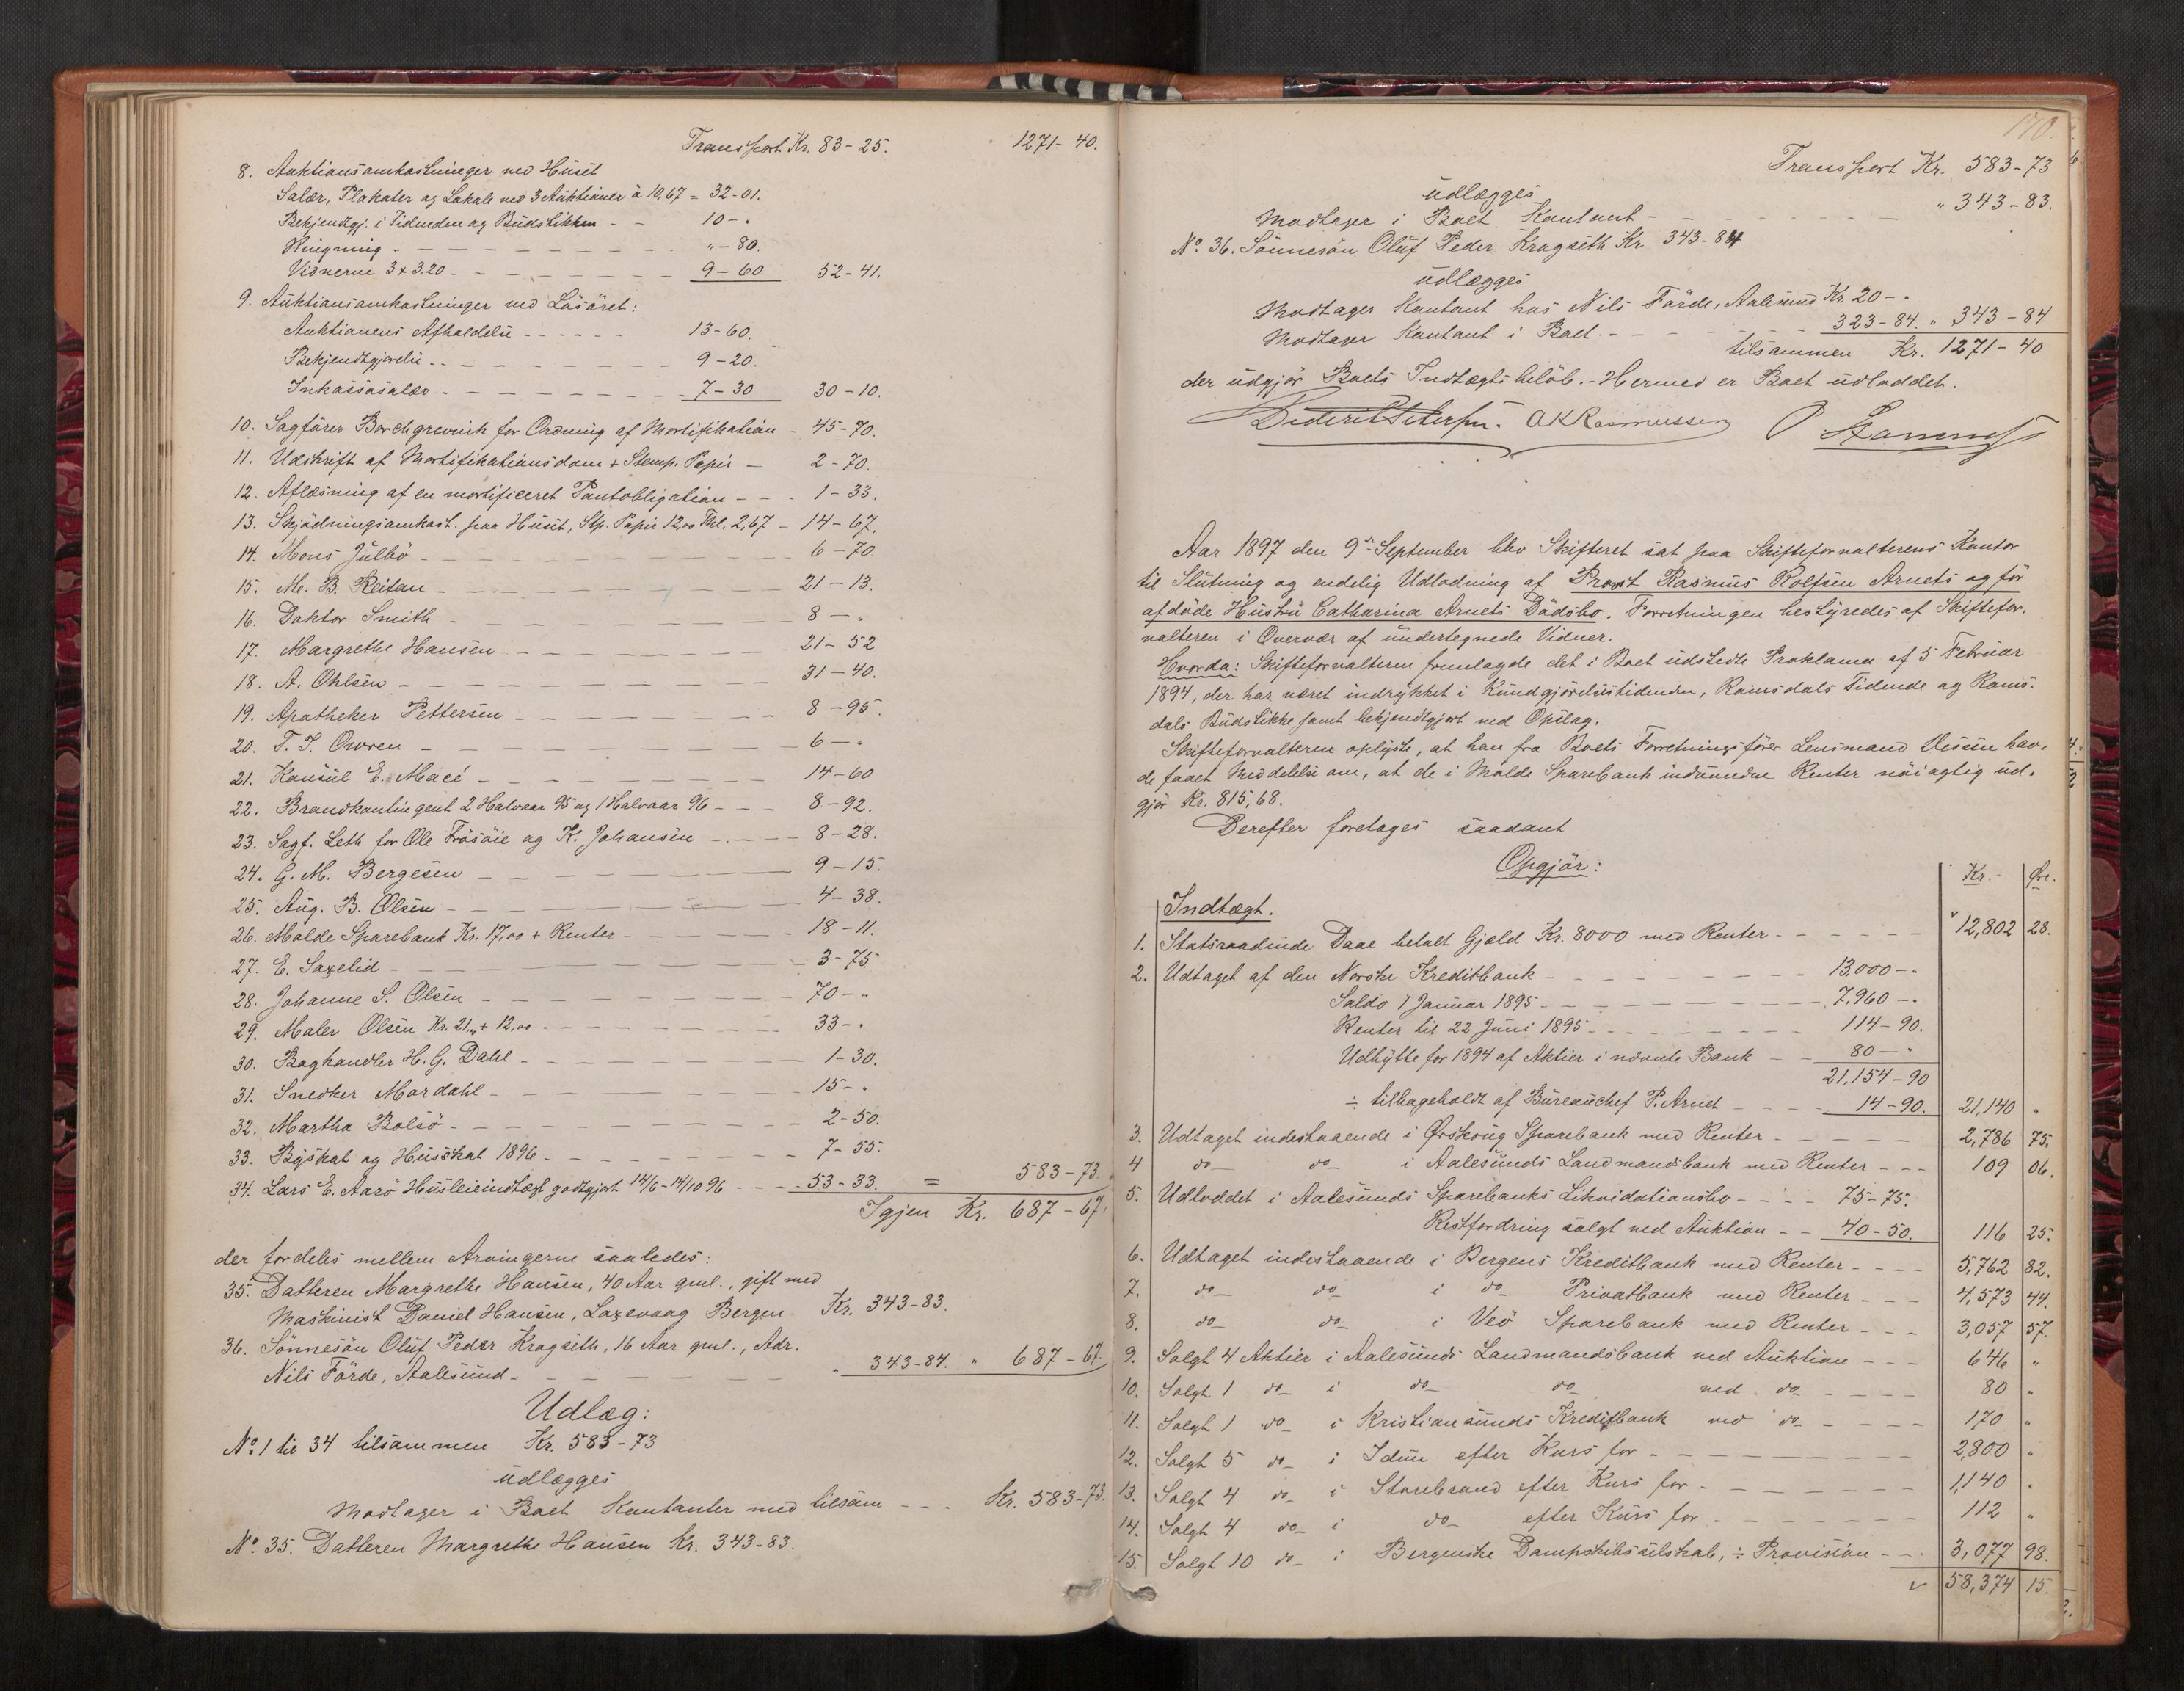 Transport Kr. 83-25. 1271-40.
8. Auktionsomkostninger ved Huset
Salær, Plakater og Lokale ved 3 Auktioner à 10,67 = 32-01.
Bekjendtgj. i Tidenden og Budstikken - - 10-"
Ringning - - - "-80.
Vidnerne 3 x 3.20 - - - 9-60 52-41.
9. Auktionsomkostninger ved Løsøret:
Auktionens Afholdelse - - - 13-60.
Bekjendtgjørelse - - - 9-20.
Inkassosalær - - - 7-30 30-10.
10. Sagfører Borchgrevink for Ordning af Mortifikation - 45-70.
11. Udskrift af Mortifikationsdom + Stemp. Papir - 2-70.
12. Aflæsning af en mortificeret Pantobligation - - 1-33.
13. Skjødningsomkost. paa Huset, Stp. Papir 12,00 Thl. 2,67 - 14-67.
14. Mons Julbø - - - 6-70
15. M. B. Reitan - - - 21-13.
16. Doktor Smith - - - 8-"
17. Margrethe Hansen - - - 21-52
18. A. Ohlsen - - - 31-40.
19. Apotheker Pettersen - - - 8-95.
20. T. J. Owren - - - 6-"
21. Konsul E. Macé - - - 14-60
22. Brandkontingent 2 Halvaar 95 og 1 Halvaar 96 - - - 8-92.
23. Sagf. Leth for Ole Frøsøie og K. Johansen - - - 8-28.
24. G. M. Bergesen - - - 9-15.
25. Aug. B. Olsen - - - 4-38.
26. Molde Sparebank Kr. 17,00 + Renter - - - 18-11.
27. E. Saxelid - - - 3-75
28. Johanne S. Olsen - - - 70-"
29. Maler Olsen Kr. 21," + 12,00 - - - 33-"
30. Boghandler H. G. Dahl - - - 1-30.
31. Snedker Mordahl - - - 15-"
32. Martha Bolsø - - - 2-50.
33. Byskat og Husskat 1896 - - - 7-55.
34. Lars E. Aarø Husleieindtægt godtgjort 14/6-14/10 96 - - - 53-33. = 583-73.
Igjen Kr. 687-67.
der fordeles mellem Arvingerne saaledes:
35. Datteren Margrethe Hansen, 40 Aar gml., gift med
Maskinist Daniel Hansen, Laxevaag Bergen Kr. 343-83.
36. Sønnesøn Oluf Peder Kragseth, 16 Aar gml., Adr.
Nils Førde, Aalesund - - - " 343-84. " 687-67.
Udlæg:
No. 1 til 34 tilsammen Kr. 583-73
udlægges
Modtager i Boet Kontanter med tilsam - - - Kr. 583-73.
No. 35. Datteren Margrethe Hansen Kr. 343-83.
170.
Transport Kr. 583-73
udlægges
Modtager i Boet Kontant - - - " 343-83.
No. 36. Sønnesøn Oluf Peder Kragseth Kr. 343-84
udlægges
Modtager Kontant hos Nils Førde, Aalesund Kr. 20-"
Modtager Kontant i Boet - - - 323-84. " 343-84
tilsammen Kr. 1271-40
der udgjør Boets Indtægtsbeløb. - Hermed er Boet udloddet.
Diderik Petersen. OKRasmussen
Aar 1897 den 9de September blev Skifteret sat paa Skifteforvalterens Kontor
til Slutning og endelig Udlodning af Provst Rasmus Rolfsen Arnets og før
afdøde Hustru Catharina Arnets Dødsbo. Forretningen bestyredes af Skiftefor-
valteren i Overvær af undertegnede Vidner.
Hvorda: Skifteforvalteren fremlagde det i Boet udstedte Proklama af 5 Februar
1894, der har været indrykket i Kundgjørelsestidenden, Romsdals Tidende og Roms-
dals Budstikke samt bekjendtgjort ved Opslag.
Skifteforvalteren oplyste, at han fra Boets Forretningsfører Lensmand Ursin hav-
de faaet Meddelelse om, at de i Molde Sparebank indvundne Renter nøiagtig ud-
gjør Kr. 815,68.
Derefter foretages saadant
Opgjør:
Kr. Øre.
Indtægt.
1. Statsraadinde Daae betalt Gjæld Kr. 8000 med Renter - - - 12,802 28.
2. Udtaget af den Norske Kreditbank - - - 13,000-"
Saldo 1 Januar 1895 - - - 7,960-"
Renter til 22 Juni 1895 - - - 114-90.
Udbytte for 1894 af Aktier i nævnte Bank - - 80-"
21,154-90
÷ tilbageholdt af Bureauchef P. Arnet - - - 14-90. 21,140 "
3. Udtaget indestaaende i Ørskoug Sparebank med Renter - - - 2,786 75.
4 do do i Aalesunds Landmandsbank med Renter - - - 109 06.
5. Udloddet i Aalesunds Sparebanks Likvidationsbo - - - 75-75.
Restfordring solgt ved Auktion - - 40-50. 116 25.
6. Udtaget indestaaende i Bergens Kreditbank med Renter - - - 5,762 82.
7. do do i do Privatbank med Renter - - - 4,573 44.
8. do do i Veø Sparebank med Renter - - - 3,057 57.
9. Solgt 4 Aktier i Aalesunds Landmandsbank ved Auktion - - - 646 "
10. Solgt 1 do i do do ved do - - - 80 "
11. Solgt 1 do i Kristiansunds Kreditbank ved do - - - 170 "
12. Solgt 5 do i Idun efter Kurs for - - - 2,800 "
13. Solgt 4 do i Storebrand efter Kurs for - - - 1,140 "
14. Solgt 4 do i do efter Kurs for - - - 112 "
15. Solgt 10 do i Bergenske Dampskibsselskab, ÷ Provision - - - 3,077 98.
58,374 15.